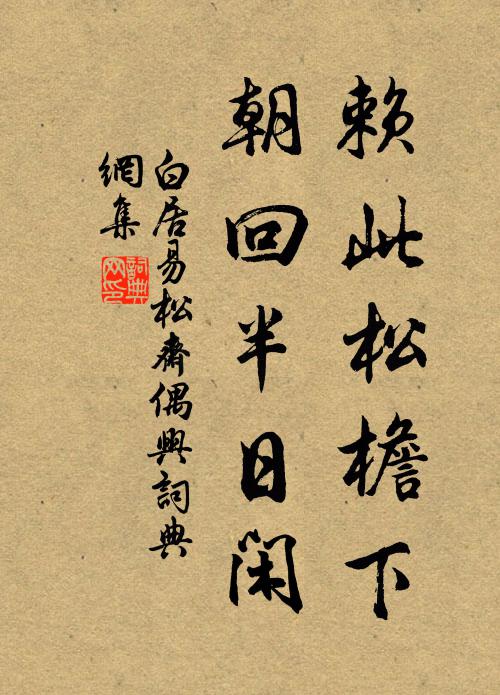 賴此松檐下
朝回半日閑
白居易松齋偶興詞典
網集
詞典
网印